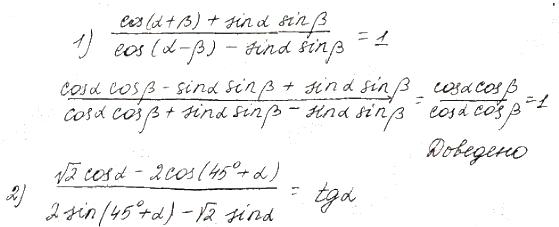 1) (cos(α+β) + sinα sinβ) / (cos(α-β) - sinα sinβ) = 1
(cosα cosβ - sinα sinβ + sinα sinβ) / (cosα cosβ + sinα sinβ - sinα sinβ) = (cosα cosβ) / (cosα cosβ) = 1
Доведено
2) (√2 cosα - 2cos(45°+α)) / (2 sin(45°+α) - √2 sinα) = tgα